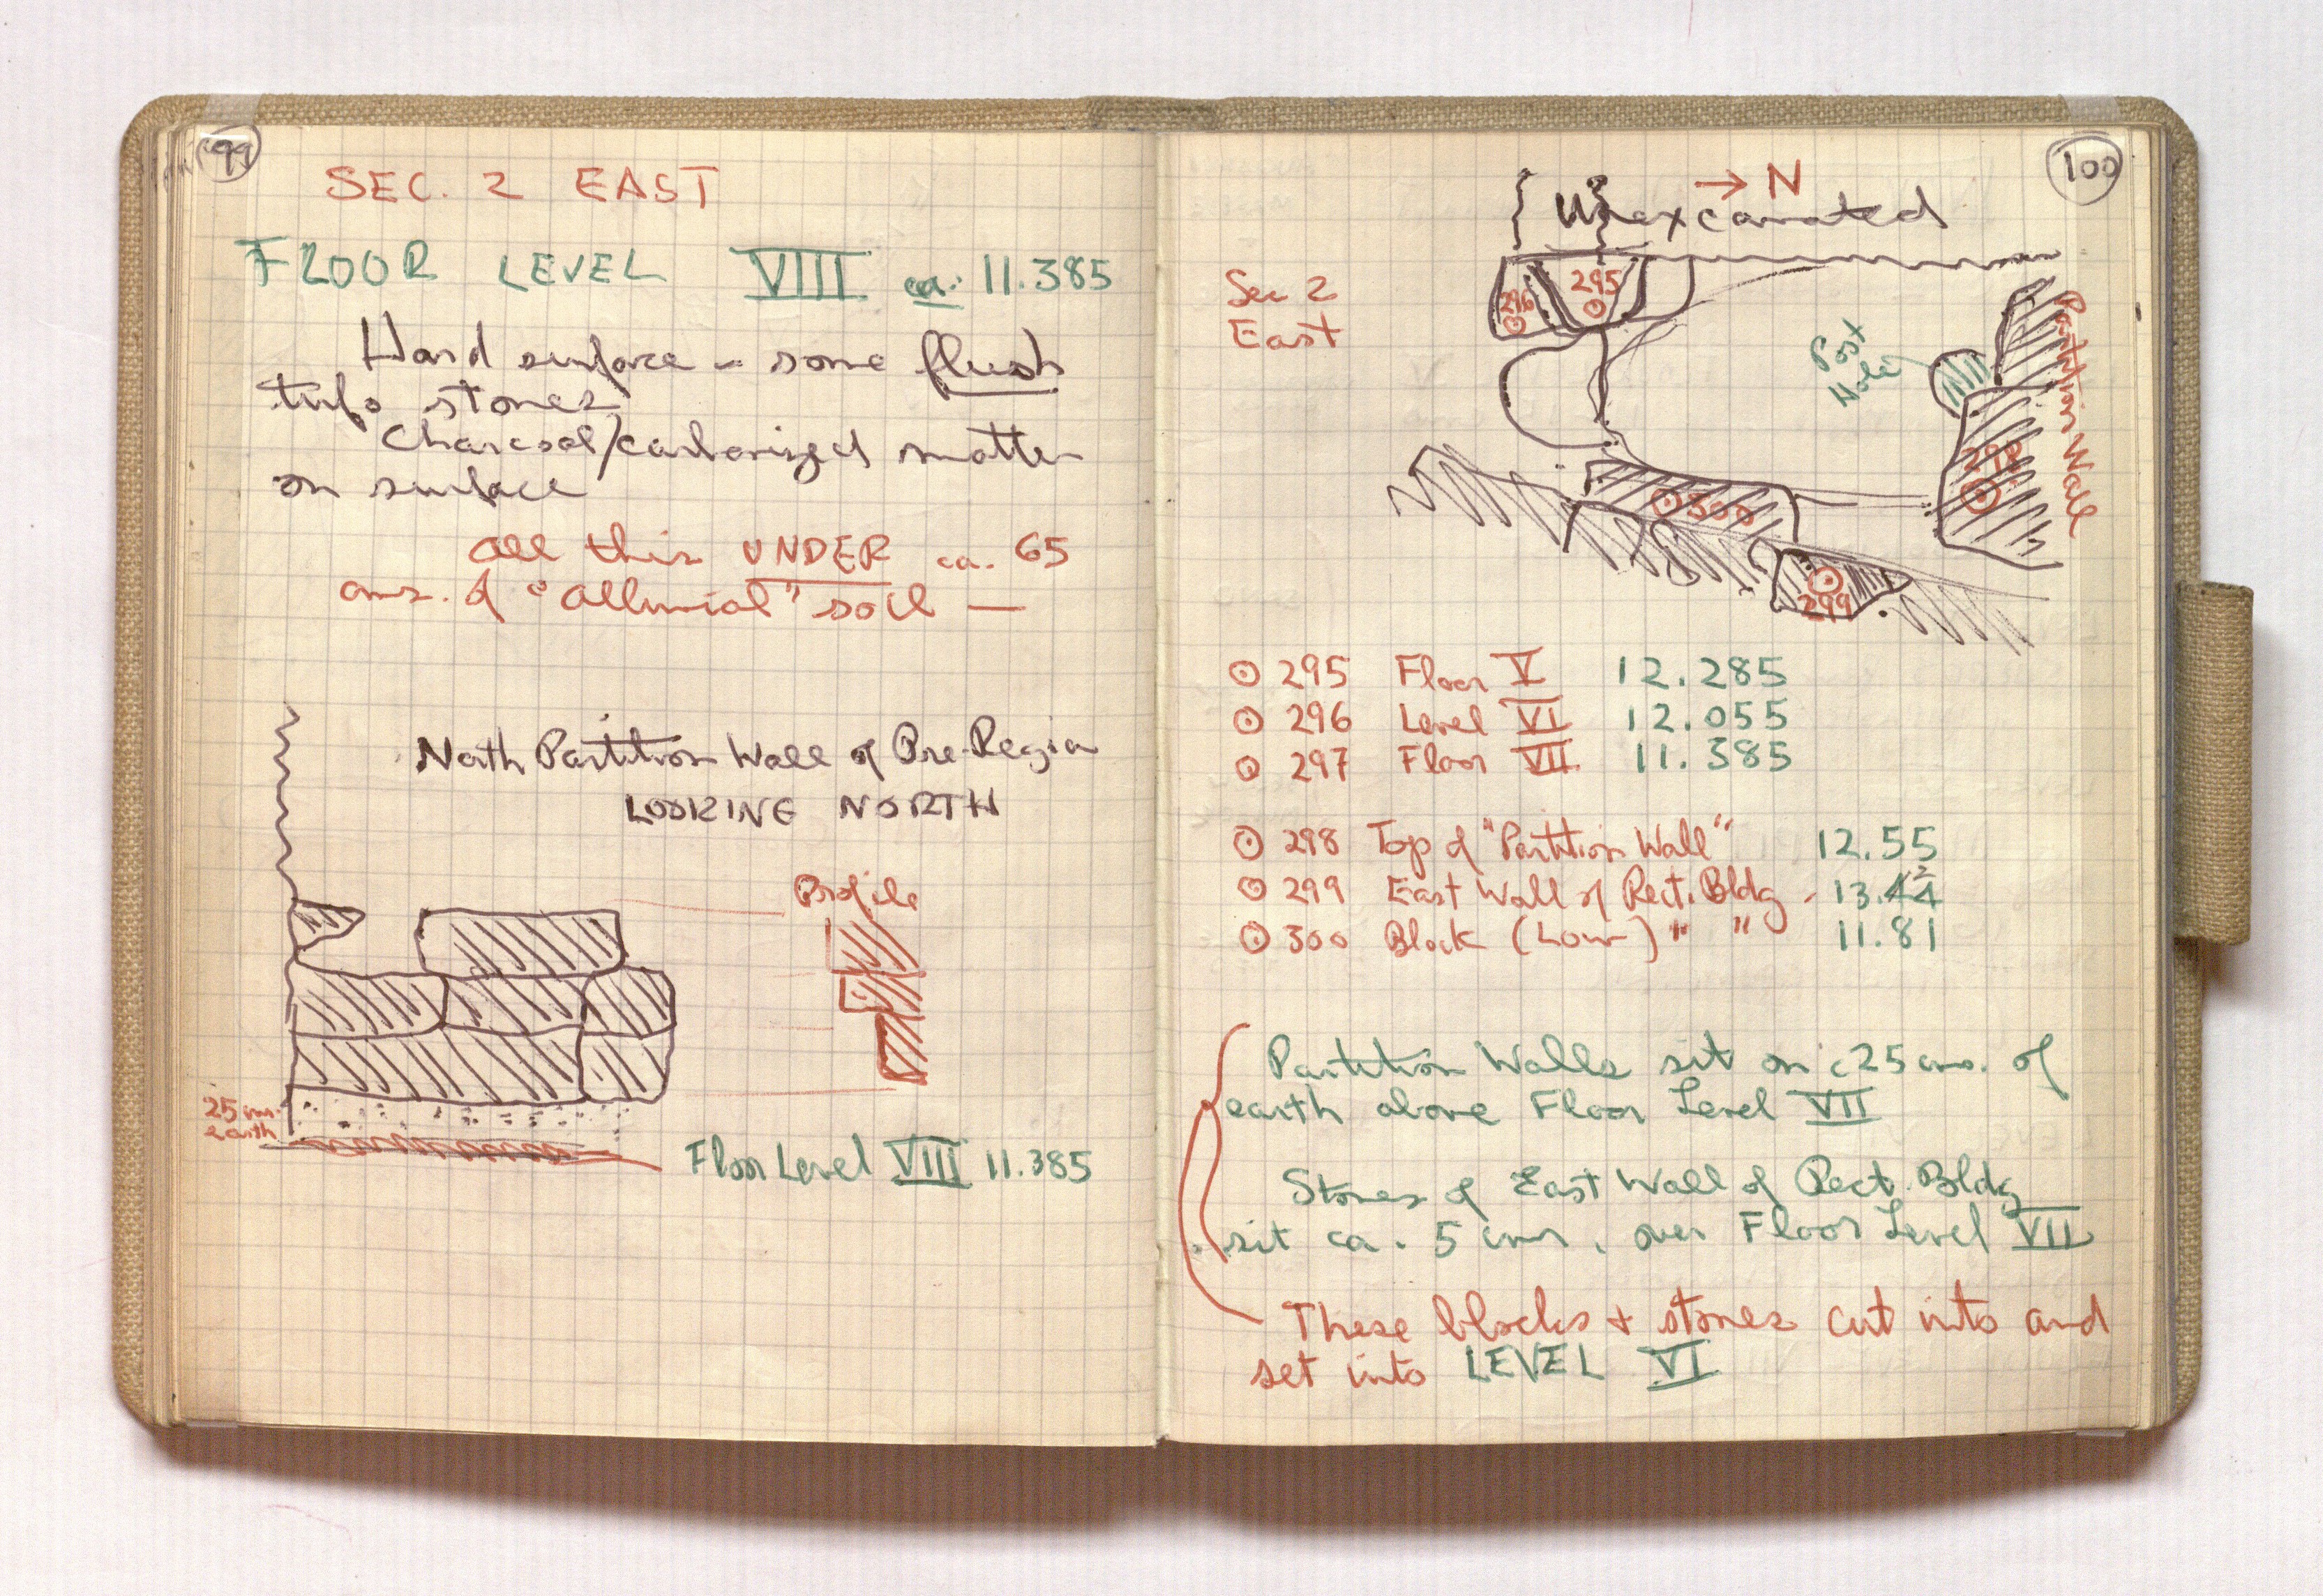 99
SEC. 2 EAST
FLOOR LEVEL VIII ca. 11.385
Hard surface - some flush
tufo stones
Charcoal/carbonized matter
on surface
All this UNDER ca. 65
cms. of "alluvial" soil —
North Partition Wall of Pre-Regia
LOOKING NORTH
Profile
25 cms.
earth
Floor Level VIII 11.385
100
→ N
Unexcavated
Sec 2
East
295
296
Post
Hole
Partition Wall
298
300
299
⊙ 295 Floor V 12.285
⊙ 296 Level VI 12.055
⊙ 297 Floor VII 11.385
⊙ 298 Top of "Partition Wall" 12.55
⊙ 299 East Wall of Rect. Bldg - 13.24
⊙ 300 Block (Lower) " " 11.81
Partition Walls sit on c 25 cms. of
earth above Floor Level VII
Stones of East Wall of Rect. Bldg
sit ca. 5 cms. over Floor Level VII
These blocks + stones cut into and
set into LEVEL VI